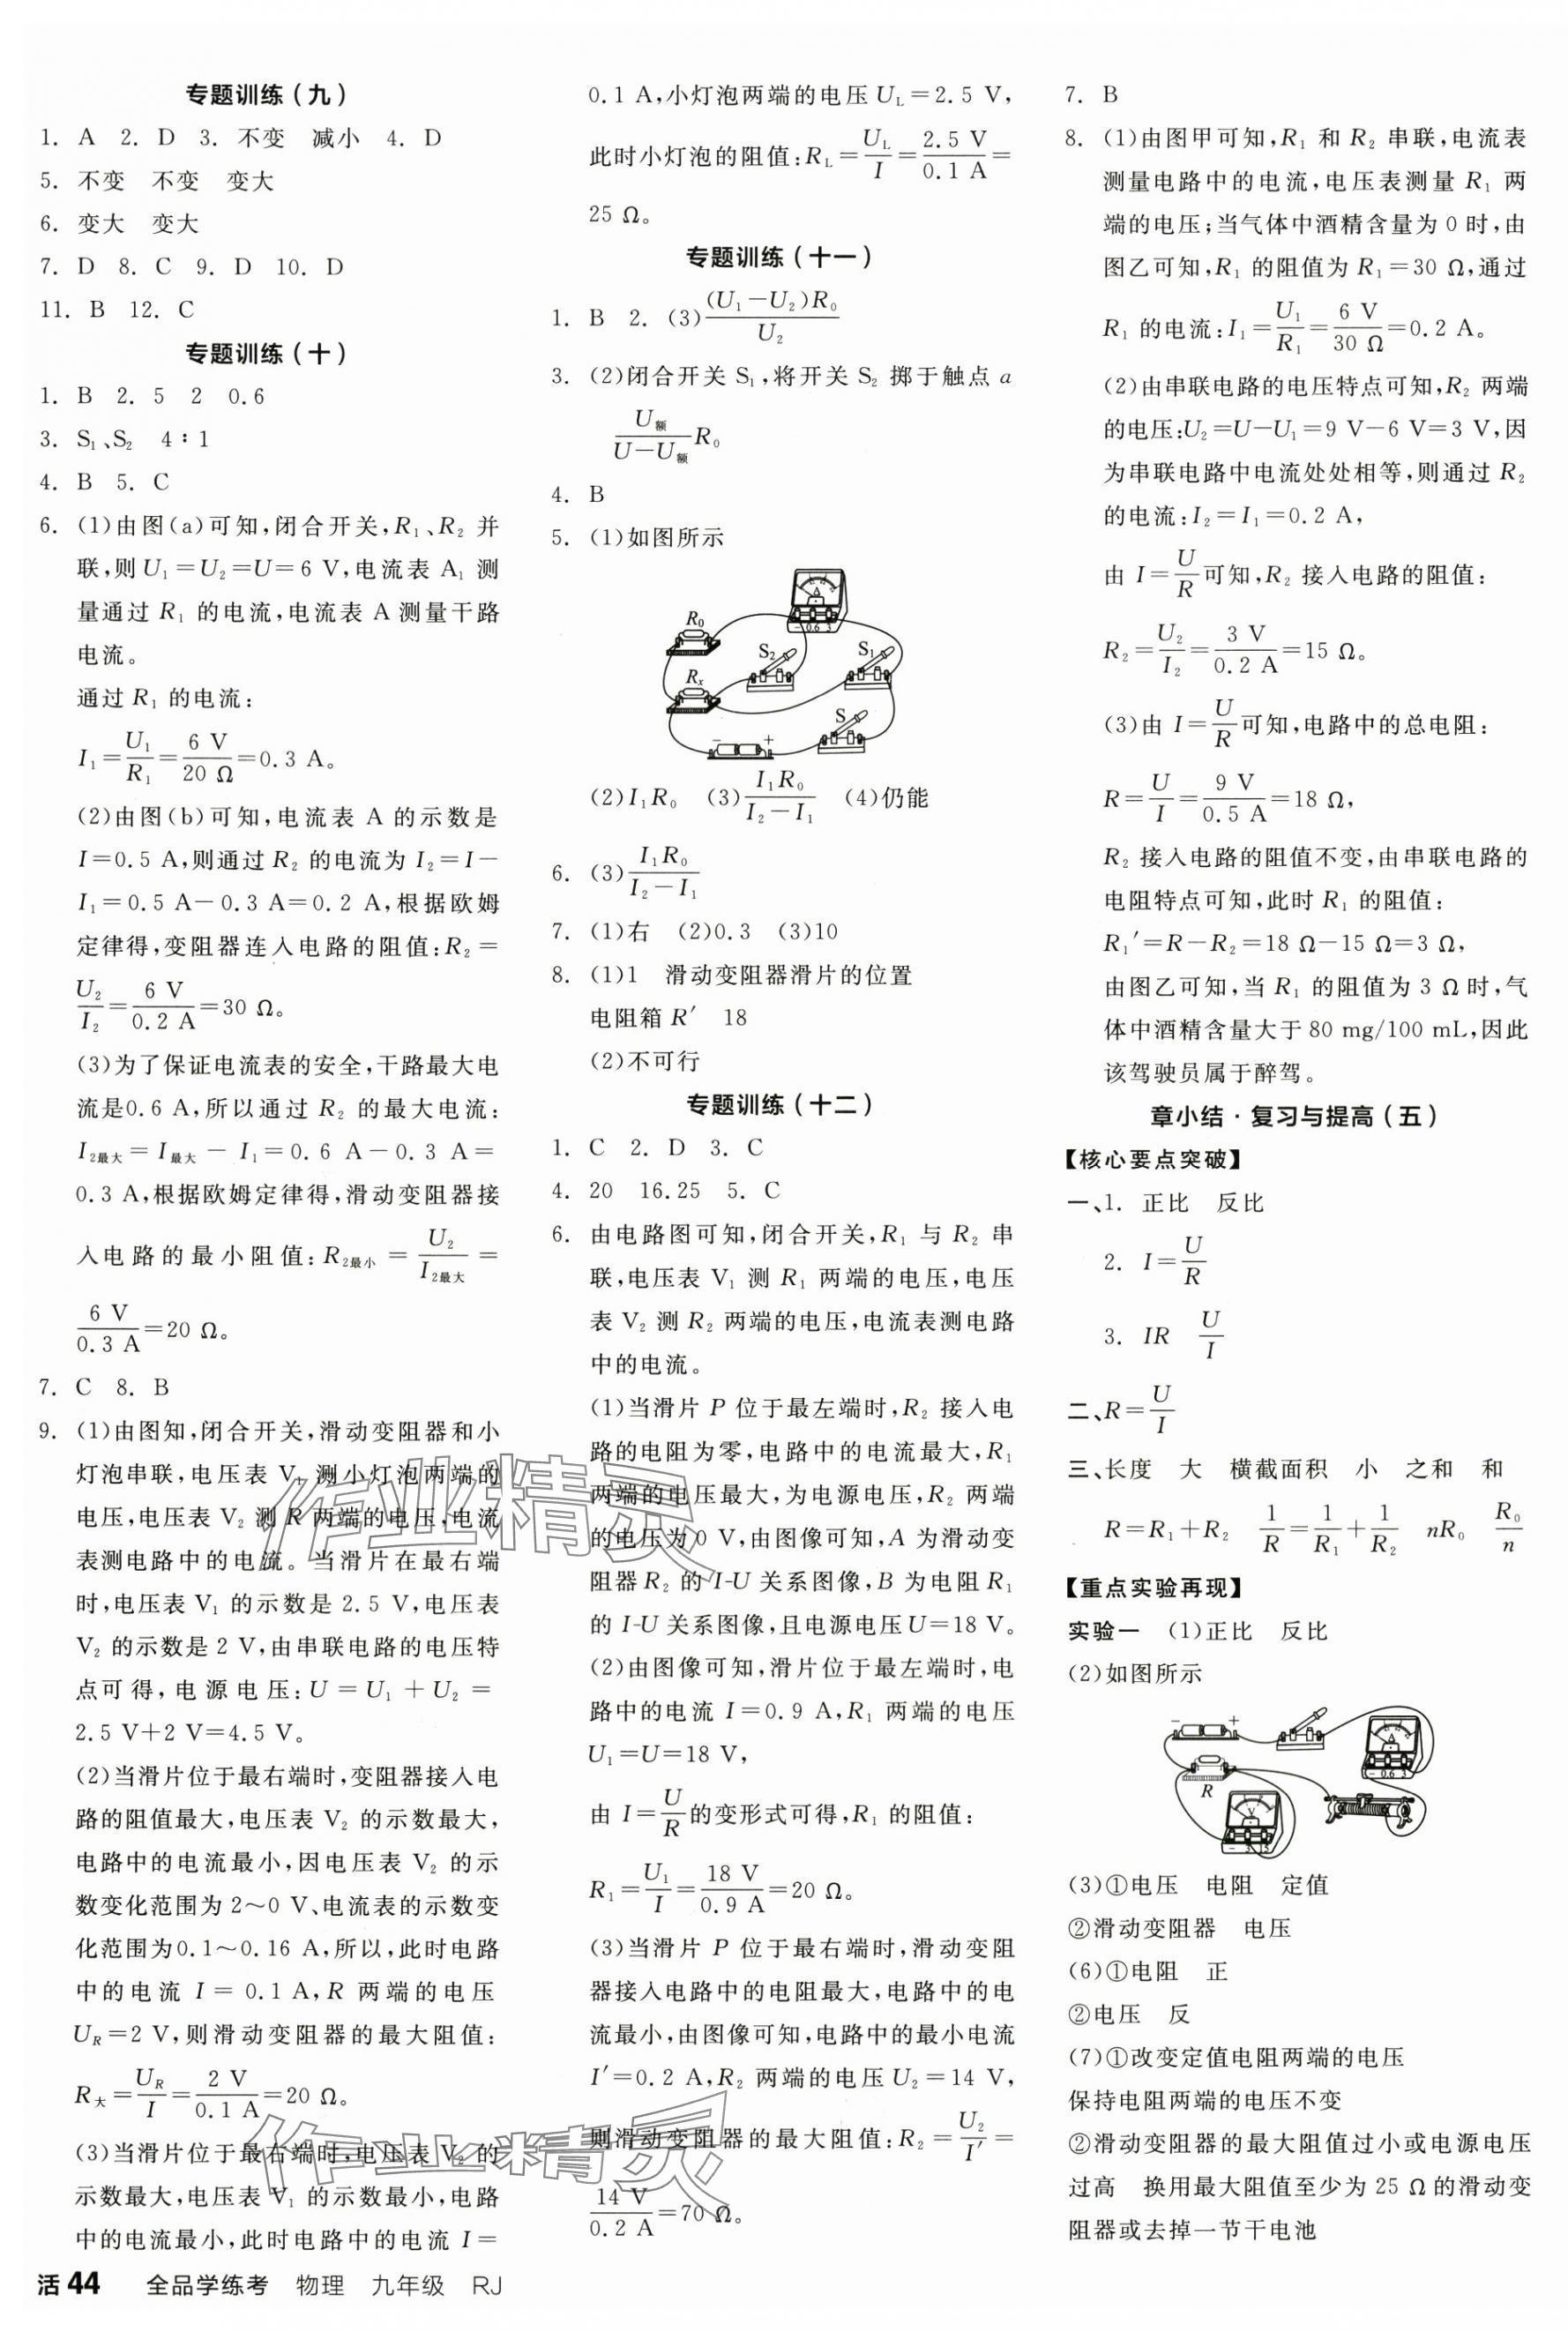 专题训练(九)
1. A 2. D 3. 不变 减小 4. D
5. 不变 不变 变大
6. 变大 变大
7. D 8. C 9. D 10. D
11. B 12. C
专题训练(十)
1. B 2. 5 2 0.6
3. S₁、S₂ 4∶1
4. B 5. C
6. (1)由图(a)可知,闭合开关,R₁、R₂ 并
联,则U₁=U₂=U=6 V,电流表 A₁ 测
量通过 R₁ 的电流,电流表 A 测量干路
电流。
通过 R₁ 的电流:
I₁=U₁/R₁=6 V/20 Ω=0.3 A。
(2)由图(b)可知,电流表 A 的示数是
I=0.5 A,则通过 R₂ 的电流为 I₂=I-
I₁=0.5 A-0.3 A=0.2 A,根据欧姆
定律得,变阻器连入电路的阻值:R₂=
U₂/I₂=6 V/0.2 A=30 Ω。
(3)为了保证电流表的安全,干路最大电
流是0.6 A,所以通过 R₂ 的最大电流:
I₂最大=I最大-I₁=0.6 A-0.3 A=
0.3 A,根据欧姆定律得,滑动变阻器接
入电路的最小阻值:R₂最小=U₂/I₂最大=
6 V/0.3 A=20 Ω。
7. C 8. B
9. (1)由图知,闭合开关,滑动变阻器和小
灯泡串联,电压表 V₁ 测小灯泡两端的
电压,电压表 V₂ 测 R 两端的电压,电流
表测电路中的电流。当滑片在最右端
时,电压表 V₁ 的示数是 2.5 V,电压表
V₂ 的示数是 2 V,由串联电路的电压特
点可得,电源电压:U=U₁+U₂=
2.5 V+2 V=4.5 V。
(2)当滑片位于最右端时,变阻器接入电
路的阻值最大,电压表 V₂ 的示数最大,
电路中的电流最小,因电压表 V₂ 的示
数变化范围为 2～0 V、电流表的示数变
化范围为0.1～0.16 A,所以,此时电路
中的电流 I=0.1 A,R 两端的电压
U_R=2 V,则滑动变阻器的最大阻值:
R大=U_R/I=2 V/0.1 A=20 Ω。
(3)当滑片位于最右端时,电压表 V₂ 的
示数最大,电压表 V₁ 的示数最小,电路
中的电流最小,此时电路中的电流 I=
0.1 A,小灯泡两端的电压 U_L=2.5 V,
此时小灯泡的阻值:R_L=U_L/I=2.5 V/0.1 A=
25 Ω。
专题训练(十一)
1. B 2. (3)(U₁-U₂)R₀/U₂
3. (2)闭合开关 S₁,将开关 S₂ 掷于触点 a
U额/(U-U额)R₀
4. B
5. (1)如图所示
A
- 0.6 3
R₀
S₂
S₁
Rₓ
S
- +
(2)I₁R₀ (3)I₁R₀/(I₂-I₁) (4)仍能
6. (3)I₁R₀/(I₂-I₁)
7. (1)右 (2)0.3 (3)10
8. (1)1 滑动变阻器滑片的位置
电阻箱 R′ 18
(2)不可行
专题训练(十二)
1. C 2. D 3. C
4. 20 16.25 5. C
6. 由电路图可知,闭合开关,R₁ 与 R₂ 串
联,电压表 V₁ 测 R₁ 两端的电压,电压
表 V₂ 测 R₂ 两端的电压,电流表测电路
中的电流。
(1)当滑片 P 位于最左端时,R₂ 接入电
路的电阻为零,电路中的电流最大,R₁
两端的电压最大,为电源电压,R₂ 两端
的电压为 0 V,由图像可知,A 为滑动变
阻器 R₂ 的 I-U 关系图像,B 为电阻 R₁
的 I-U 关系图像,且电源电压U=18 V。
(2)由图像可知,滑片位于最左端时,电
路中的电流 I=0.9 A,R₁ 两端的电压
U₁=U=18 V,
由 I=U/R的变形式可得,R₁ 的阻值:
R₁=U₁/I=18 V/0.9 A=20 Ω。
(3)当滑片 P 位于最右端时,滑动变阻
器接入电路中的电阻最大,电路中的电
流最小,由图像可知,电路中的最小电流
I′=0.2 A,R₂ 两端的电压 U₂=14 V,
则滑动变阻器的最大阻值:R₂=U₂/I′=
14 V/0.2 A=70 Ω。
7. B
8. (1)由图甲可知,R₁ 和 R₂ 串联,电流表
测量电路中的电流,电压表测量 R₁ 两
端的电压;当气体中酒精含量为 0 时,由
图乙可知,R₁ 的阻值为 R₁=30 Ω,通过
R₁ 的电流:I₁=U₁/R₁=6 V/30 Ω=0.2 A。
(2)由串联电路的电压特点可知,R₂ 两端
的电压:U₂=U-U₁=9 V-6 V=3 V,因
为串联电路中电流处处相等,则通过 R₂
的电流:I₂=I₁=0.2 A,
由 I=U/R可知,R₂ 接入电路的阻值:
R₂=U₂/I₂=3 V/0.2 A=15 Ω。
(3)由 I=U/R可知,电路中的总电阻:
R=U/I=9 V/0.5 A=18 Ω,
R₂ 接入电路的阻值不变,由串联电路的
电阻特点可知,此时 R₁ 的阻值:
R₁′=R-R₂=18 Ω-15 Ω=3 Ω,
由图乙可知,当 R₁ 的阻值为 3 Ω 时,气
体中酒精含量大于 80 mg/100 mL,因此
该驾驶员属于醉驾。
章小结·复习与提高(五)
【核心要点突破】
一、1. 正比 反比
2. I=U/R
3. IR U/I
二、R=U/I
三、长度 大 横截面积 小 之和 和
R=R₁+R₂ 1/R=1/R₁+1/R₂ nR₀ R₀/n
【重点实验再现】
实验一 (1)正比 反比
(2)如图所示
- +
A
- 0.6 3
R
V
- 3 15
(3)①电压 电阻 定值
②滑动变阻器 电压
(6)①电阻 正
②电压 反
(7)①改变定值电阻两端的电压
保持电阻两端的电压不变
②滑动变阻器的最大阻值过小或电源电压
过高 换用最大阻值至少为 25 Ω 的滑动变
阻器或去掉一节干电池
作业精灵
作业精灵
活 44 全品学练考 物理 九年级 RJ